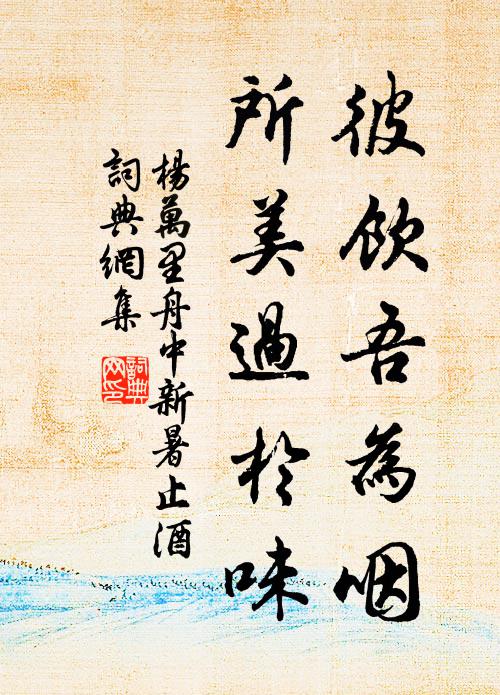 彼飲吾為咽
所美過於味
楊萬里舟中新暑止酒
詞典網集
詞典网印